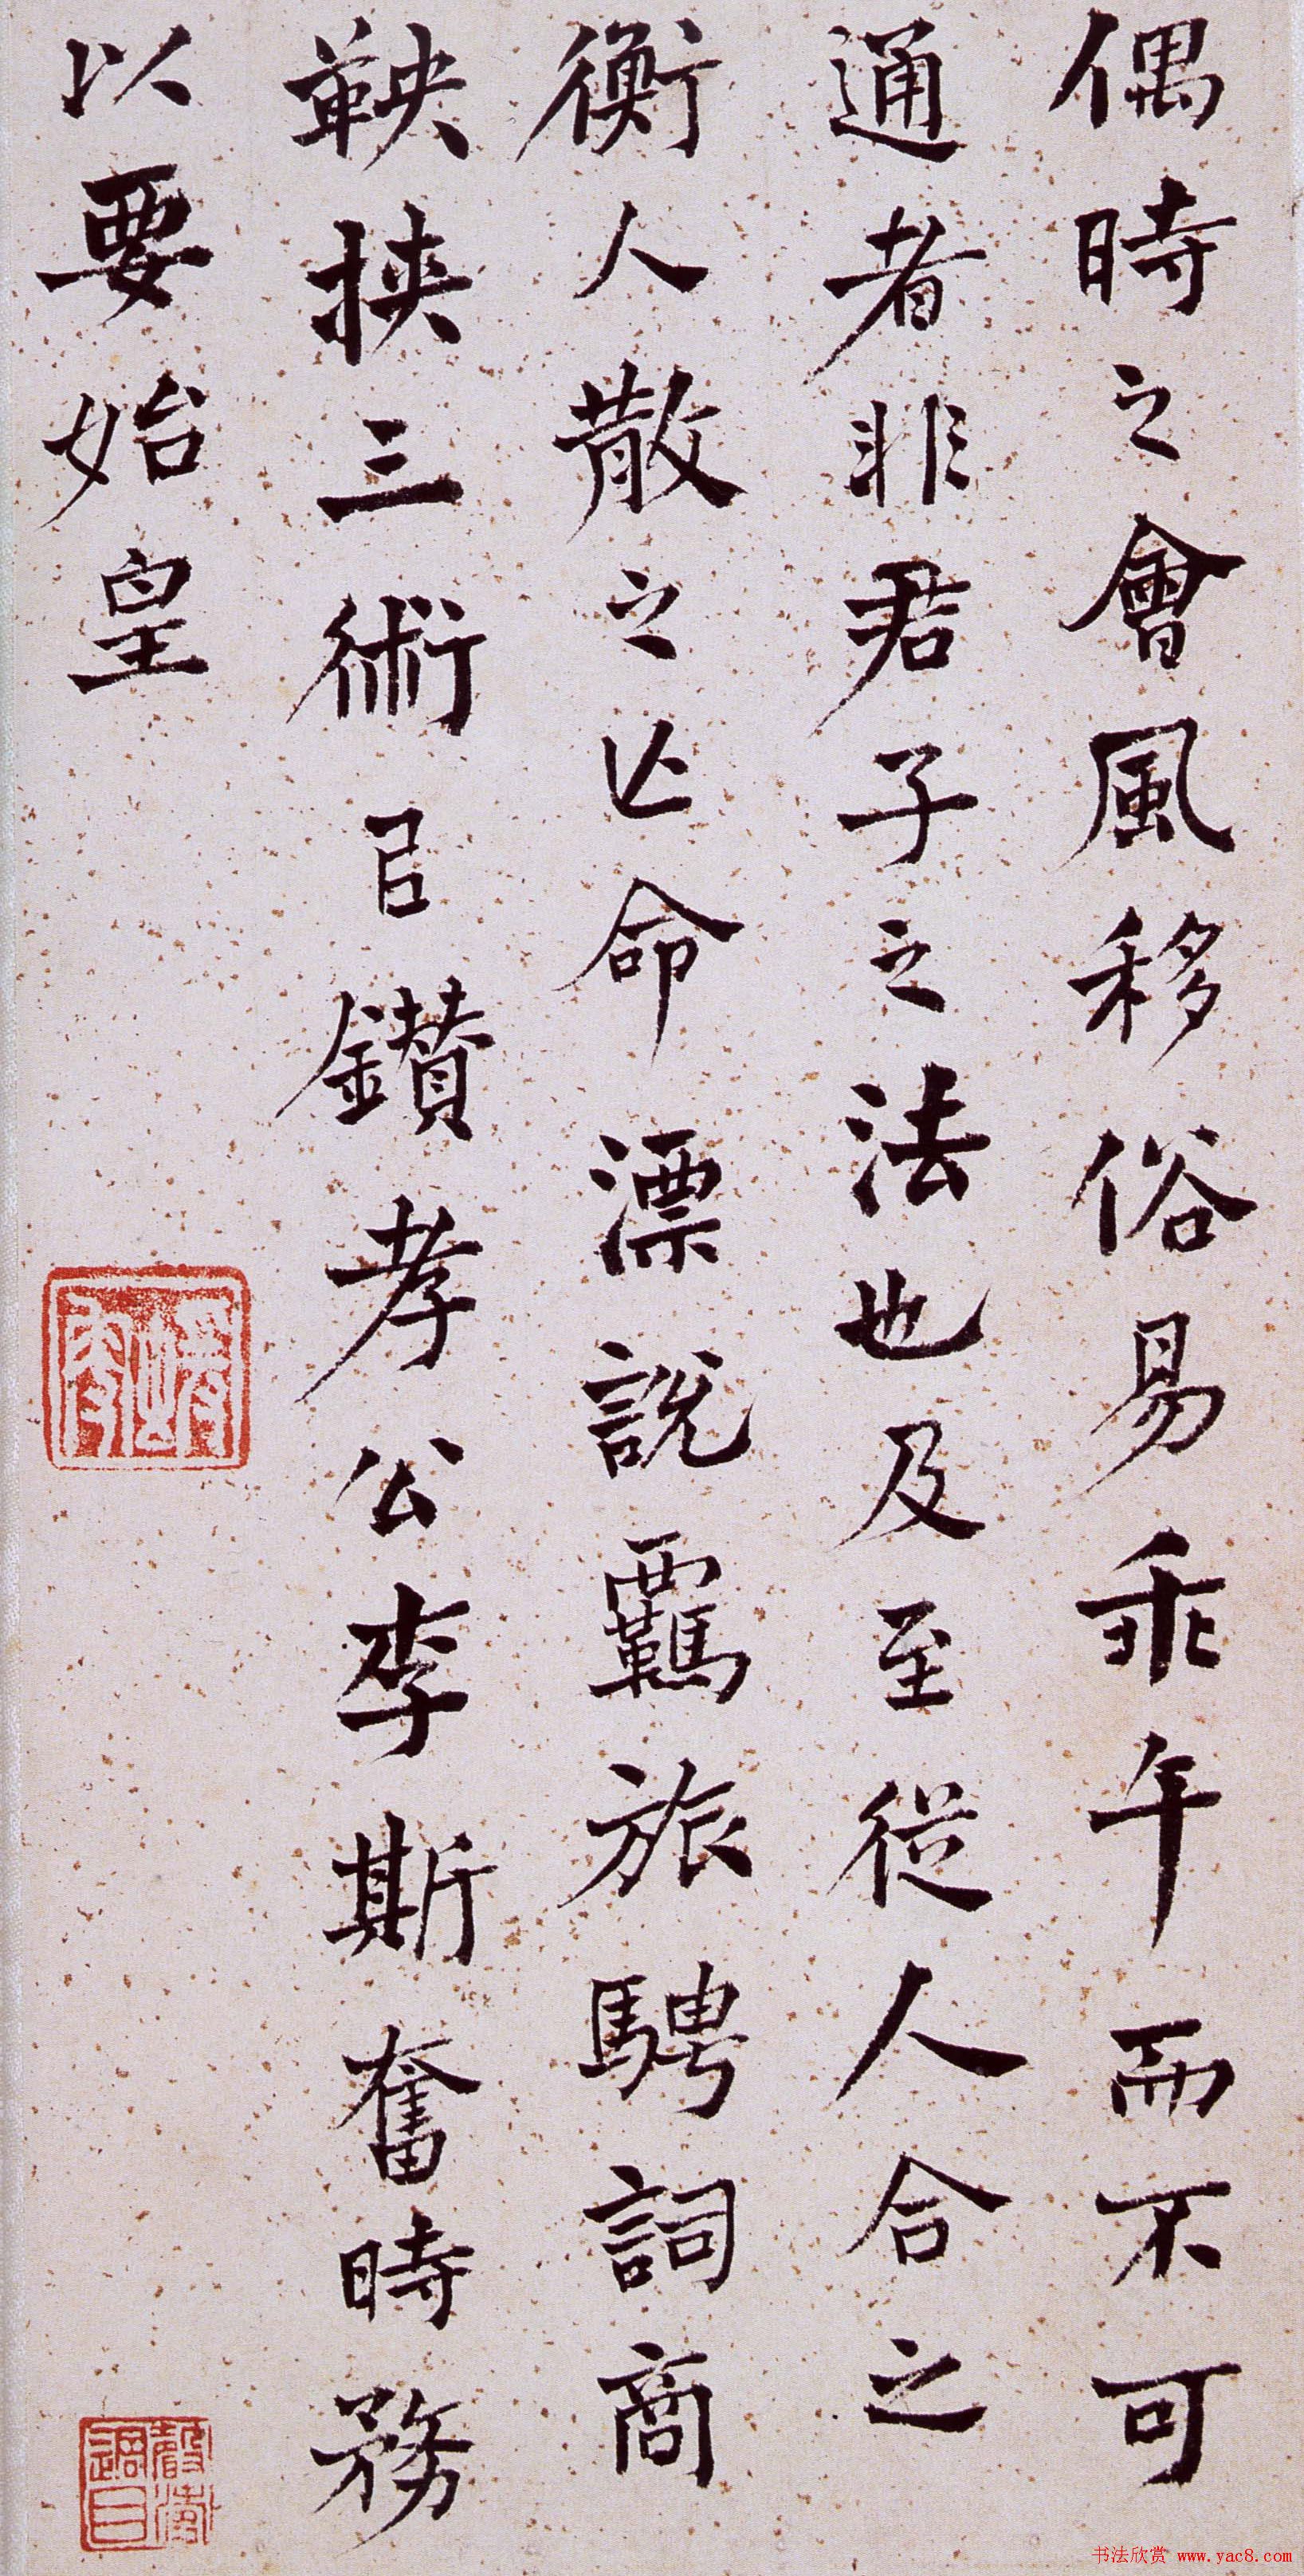 偶時之會風移俗易乖午而不可
通者非君子之法也及至從人合之
衡人散之亡命漂說羈旅騁詞商
鞅挾三術㠯鑽孝公李斯奮時務
以要始皇
书法欣赏 www.yac8.com